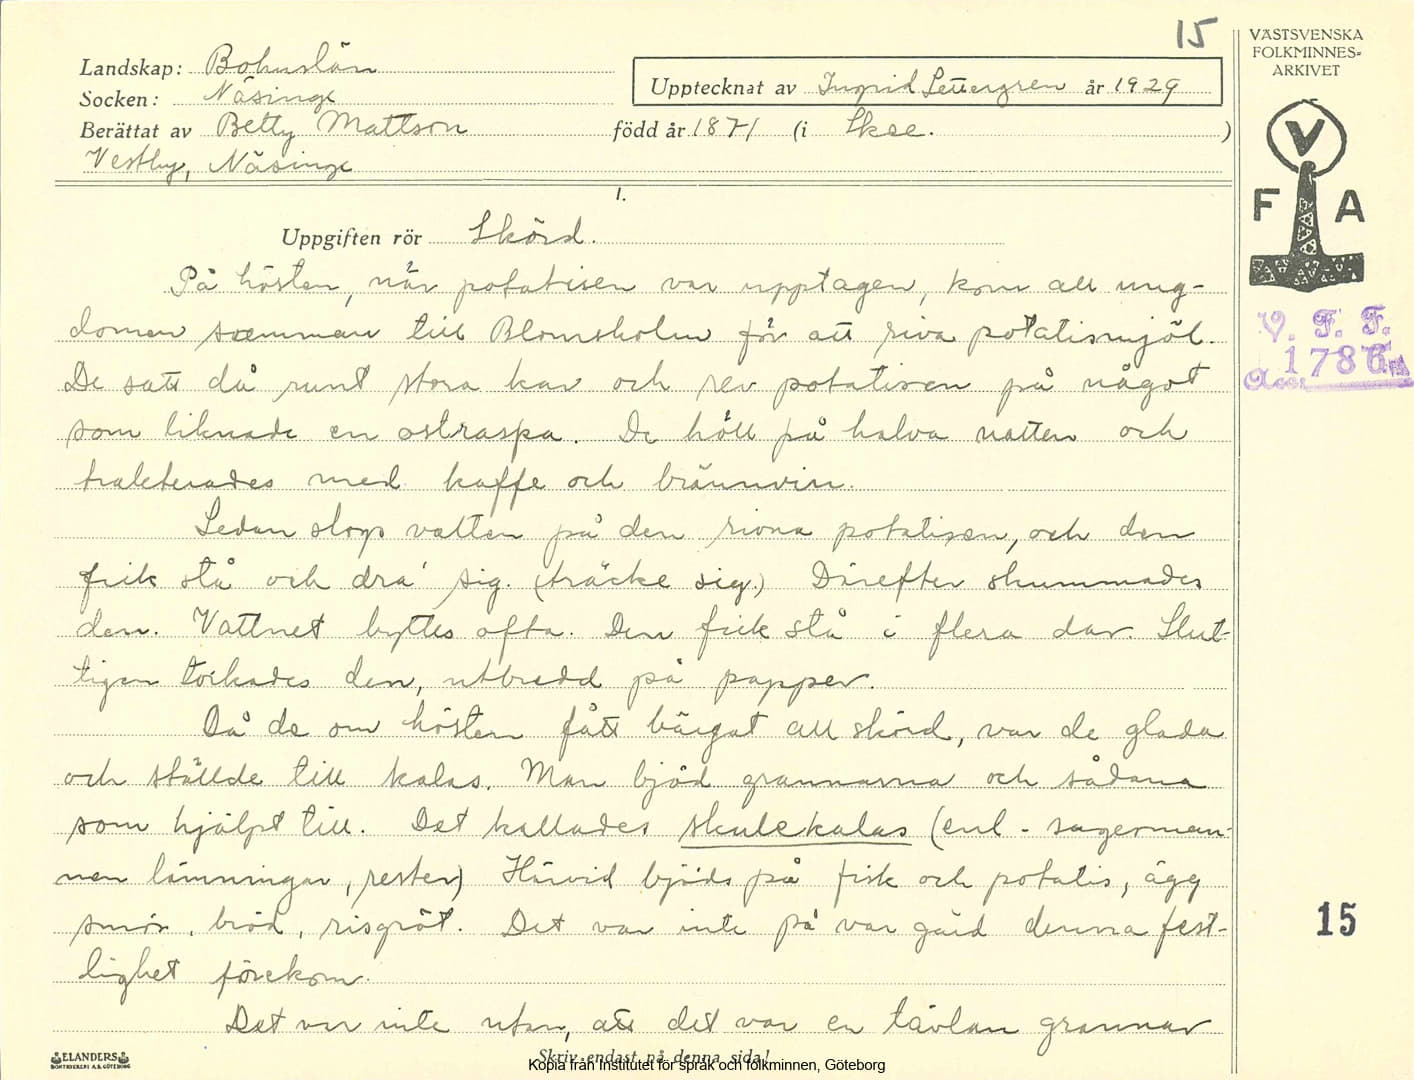 15
Landskap: Bohuslän
Socken: Näsinge
Upptecknat av Ingrid Lettergren år 1929
Berättat av Betty Mattson född år 1871 (i Skee.)
Vestby, Näsinge
1.
Uppgiften rör Skörd.
På hösten, när potatisen var upptagen, kom all ung-
domen samman till Blomsholm för att riva potatismjöl.
De satt då runt stora kar och rev potatisen på något
som liknade en ostraspa. De höll på halva natten och
trakterades med kaffe och brännvin.
Sedan slogs vatten på den rivna potatisen, och den
fick stå och dra' sig. (träcke sig.) Därefter skummades
den. Vattnet byttes ofta. Den fick stå i flera dar. Slut-
ligen torkades den, utbredd på papper.
Då de om hösten fått bärgat all skörd, var de glada
och ställde till kalas. Man bjöd grannarna och sådana
som hjälpt till. Det kallades skulekalas (enl. sagerman-
nen lämningar, rester) Härvid bjöds på fisk och potatis, ägg
smör, bröd, risgröt. Det var inte på var gård denna fest-
lighet förekom.
Det var inte utan, att det var en tävlan grannar
Skriv endast på denna sida!
ELANDERS
BOKTRYCKERI A.B. GÖTEBORG
Kopia från Institutet för språk och folkminnen, Göteborg
VÄSTSVENSKA
FOLKMINNES-
ARKIVET
V
F A
V. F. F.
Acc. 1786
15